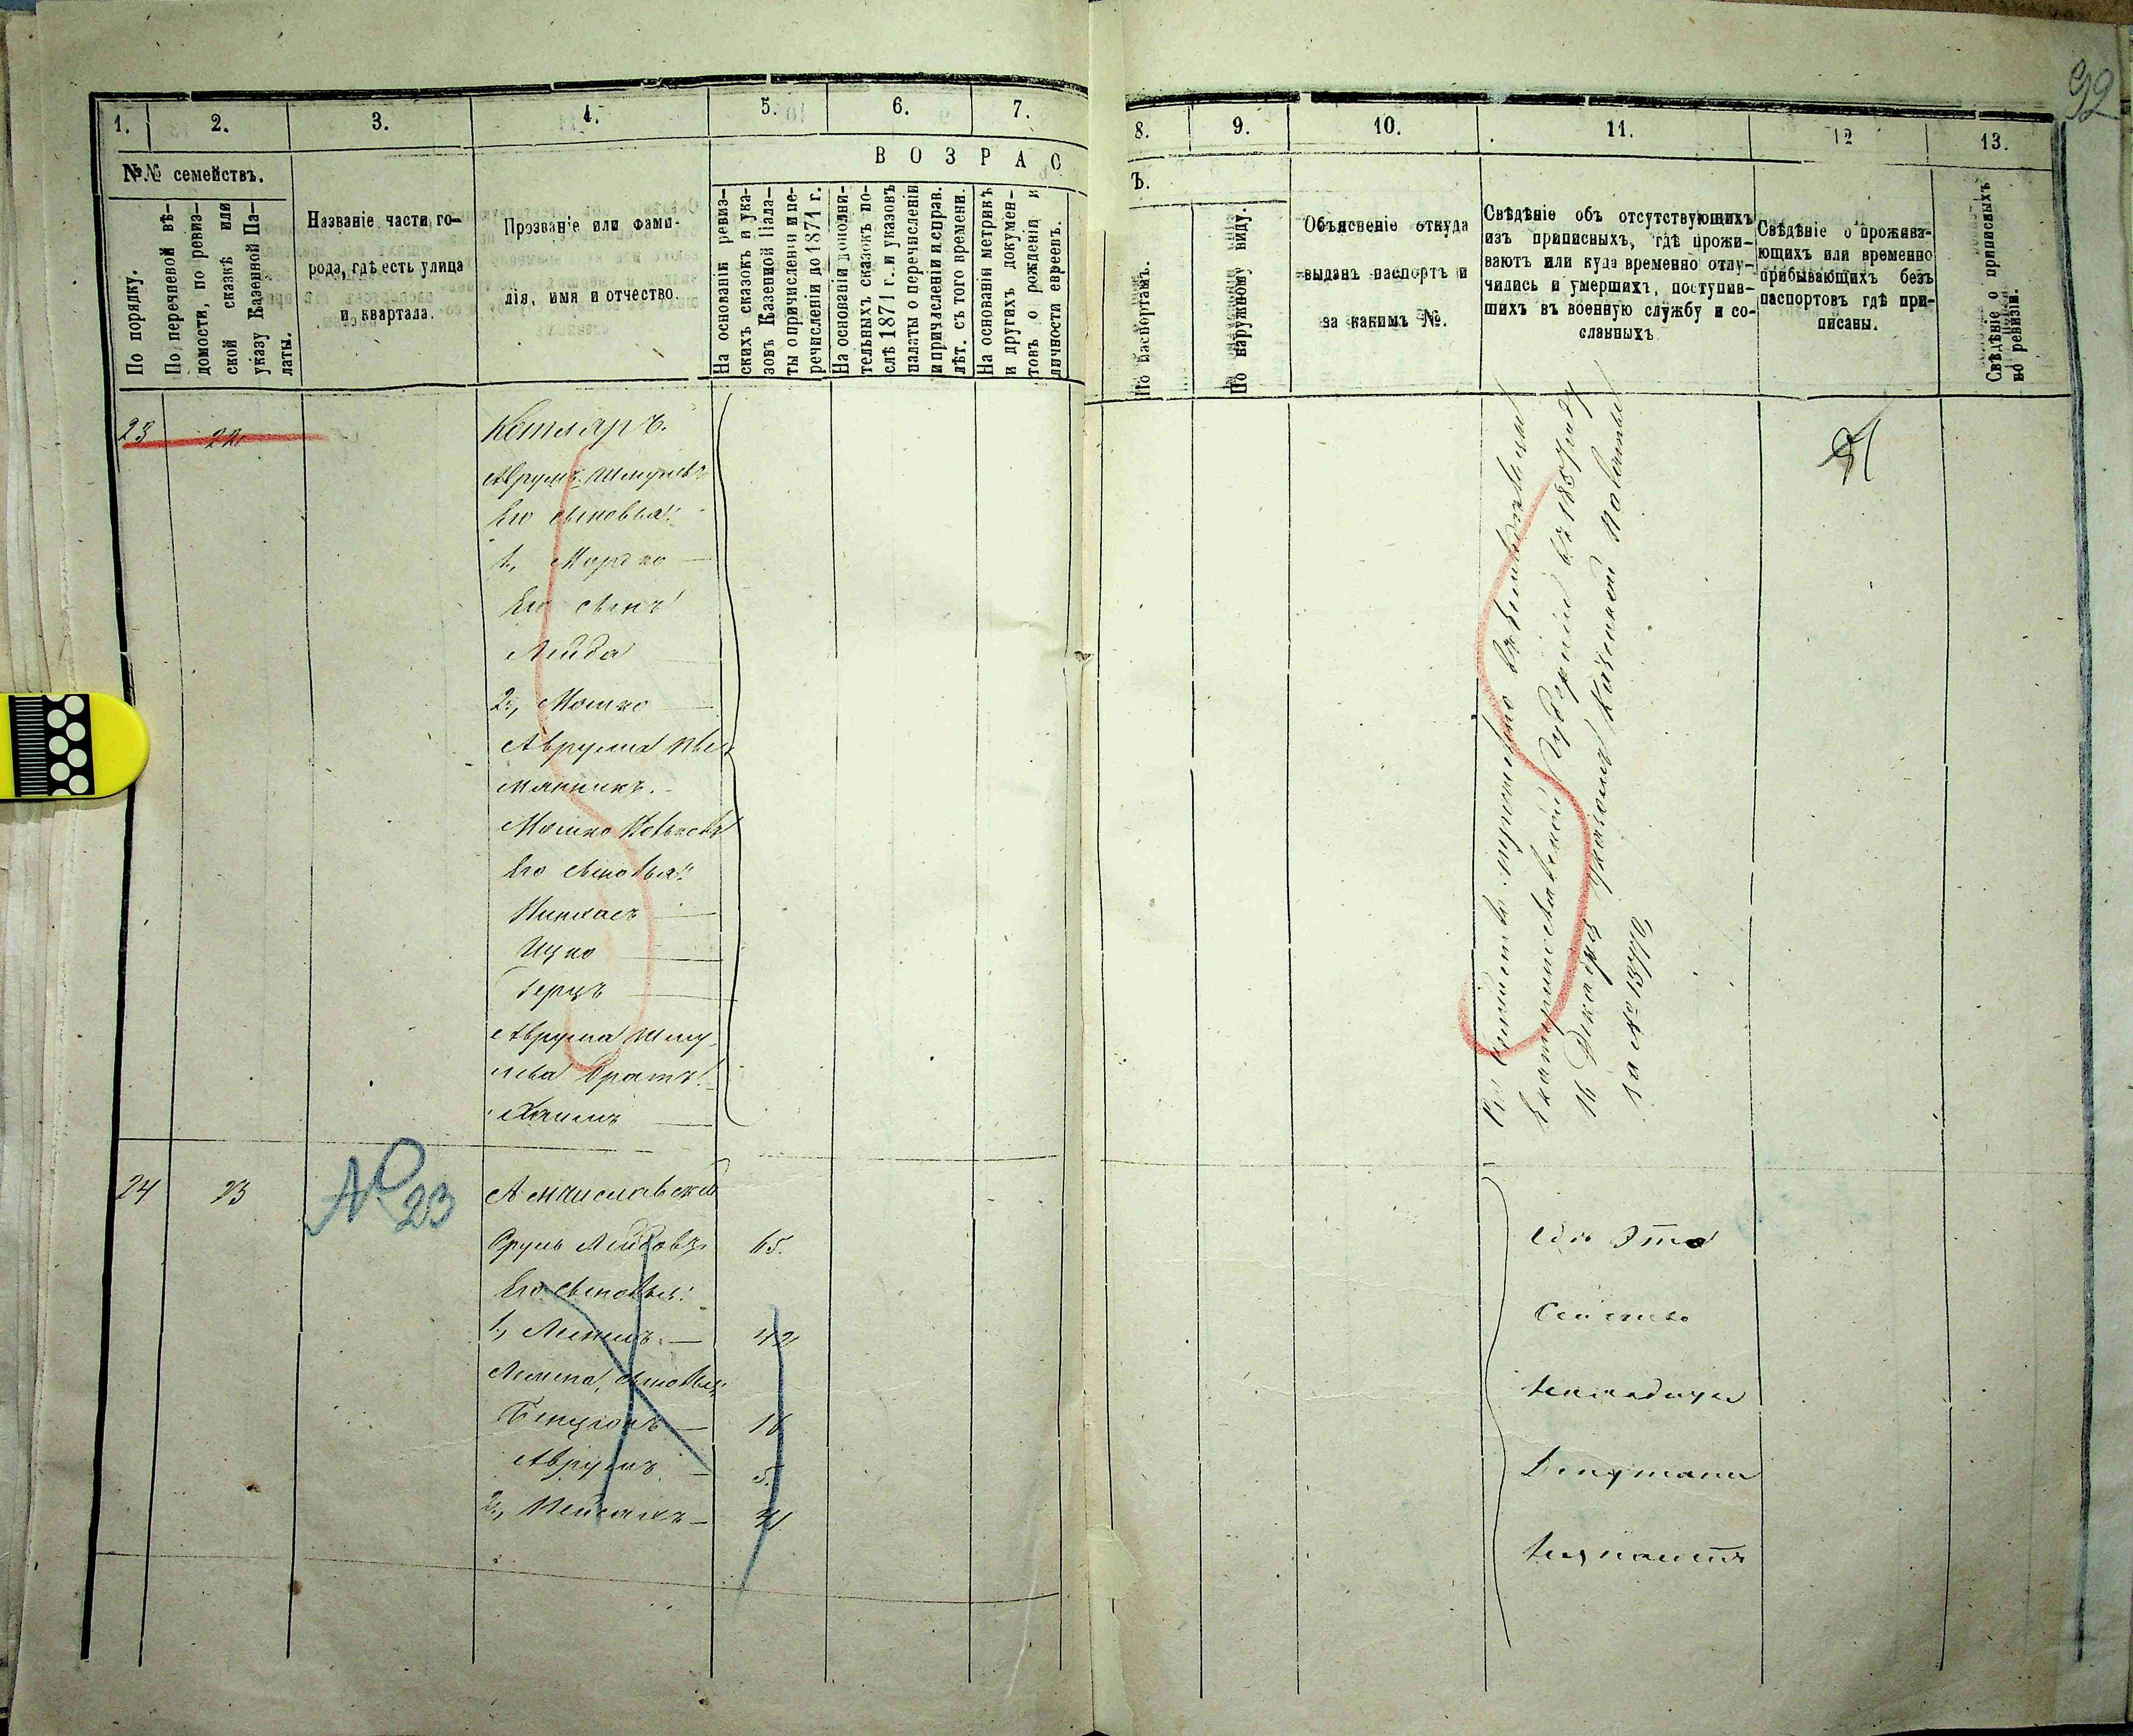 92
1. 2. 3. 4. 5. 6. 7.
8. 9. 10. 11. 12 13.
ВОЗРАС
Ъ.
№№ семействъ.
По порядку.
По перечневой вѣ-
домости, по ревиз-
ской сказкѣ или
указу Казенной Па-
латы.
Названіе части го-
рода, гдѣ есть улица
и квартала.
Прозваніе или фами-
лія, имя и отчество.
На основаніи ревиз-
скихъ сказокъ и ука-
зовъ Казенной Пала-
ты о причисленіи и пе-
речисленіи до 1871 г.
На основаніи дополни-
тельныхъ сказокъ по-
слѣ 1871 г. и указовъ
палаты о перечисленіи
и причисленіи и справ.
лѣт. съ того времени.
На основаніи метрикъ
и другихъ докумен-
товъ о рожденіи и
личности евреевъ.
По паспортамъ.
По наружному виду.
Объясненіе откуда
выданъ паспортъ и
за какимъ №.
Свѣдѣніе объ отсутствующихъ
изъ приписныхъ, гдѣ прожи-
ваютъ или куда временно отлу-
чились и умершихъ, поступив-
шихъ въ военную службу и со-
сланныхъ
Свѣдѣніе о прожива-
ющихъ или временно
прибывающихъ безъ
паспортовъ гдѣ при-
писаны.
Свѣдѣніе о приписныхъ
по ревизіи.
23 22
Котляръ.
Аврумъ Шмулевъ
Его сыновья:
1, Мордко
Его сынъ
Лейба
2, Мошко
Аврума пле-
мянникъ.
Мошко
Его сыновья:
Пинхасъ
Ицко
Герцъ
Аврума Шму-
лева братъ
Хаимъ
въ
Екатеринославской Губерніи въ
16 Декабря указомъ Казенной Палаты
за № 13770
24 23 №23
Сруль Лейбовъ 65.
Его сыновья:
1, 42
сыновья:
Бенціонъ 16
Аврумъ 5.
2, Пейсахъ
Эта